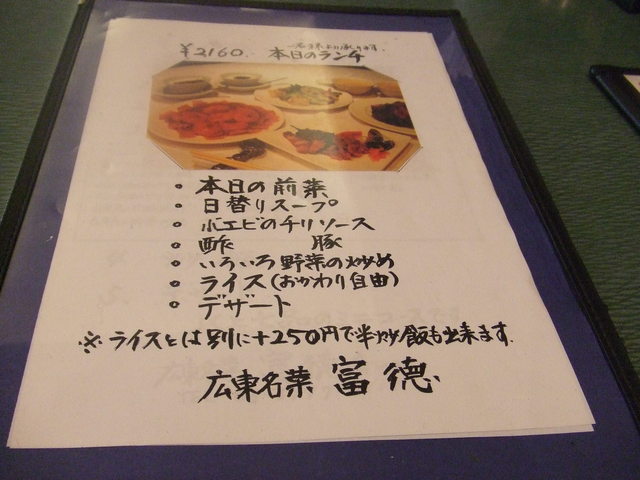 一名様より承ります。
¥2160. 本日のランチ
• 本日の前菜
• 日替りスープ
• 小エビのチリソース
• 酢 豚
• いろいろ野菜の炒め
• ライス(おかわり自由)
• デザート
※ライスとは別に+250円で半炒飯も出来ます.
広東名菜 富徳.